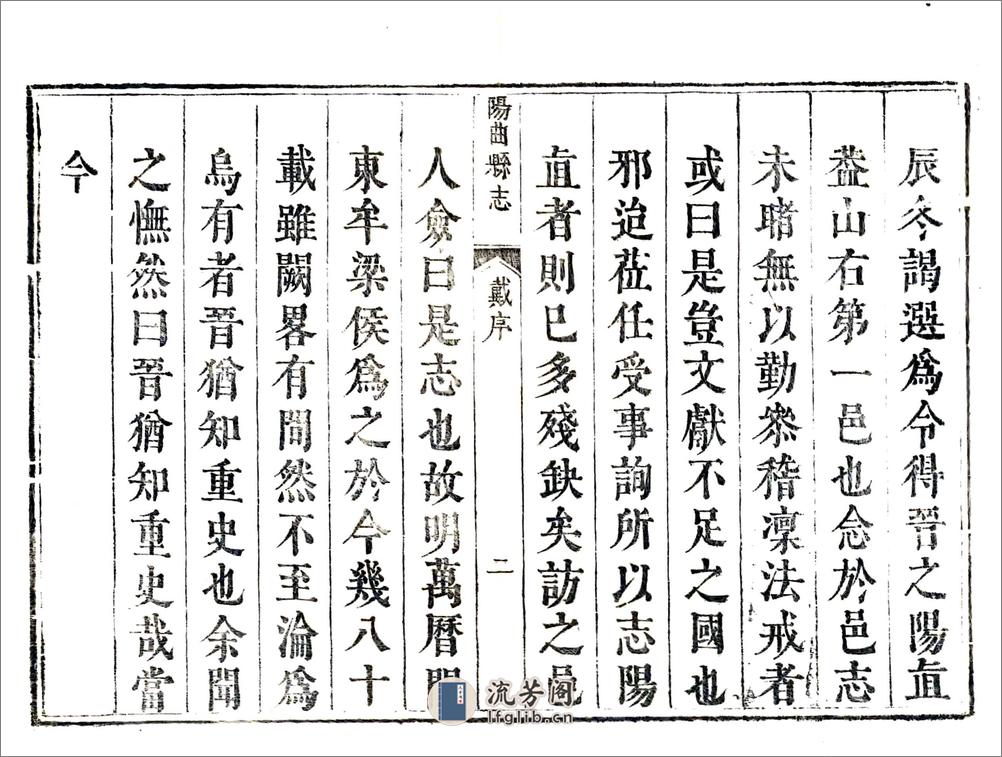 辰冬謁選爲令得晉之陽直
葢山右第一邑也念於邑志
未睹無以勤叅稽凜法戒者
或曰是豈文獻不足之國也
邪迨莅任受事詢所以志陽
直者則已多殘缺矣訪之邑
陽曲縣志
戴序
二
人僉曰是志也故明萬曆間
東牟梁侯爲之於今幾八十
載雖闕畧有間然不至淪爲
烏有者晉猶知重史也余聞
之憮然曰晉猶知重史哉當
今
流芳阁
lfglib.cn